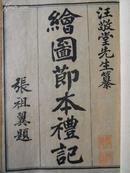 汪敬堂先生纂
繪圖節本禮記
張祖翼題